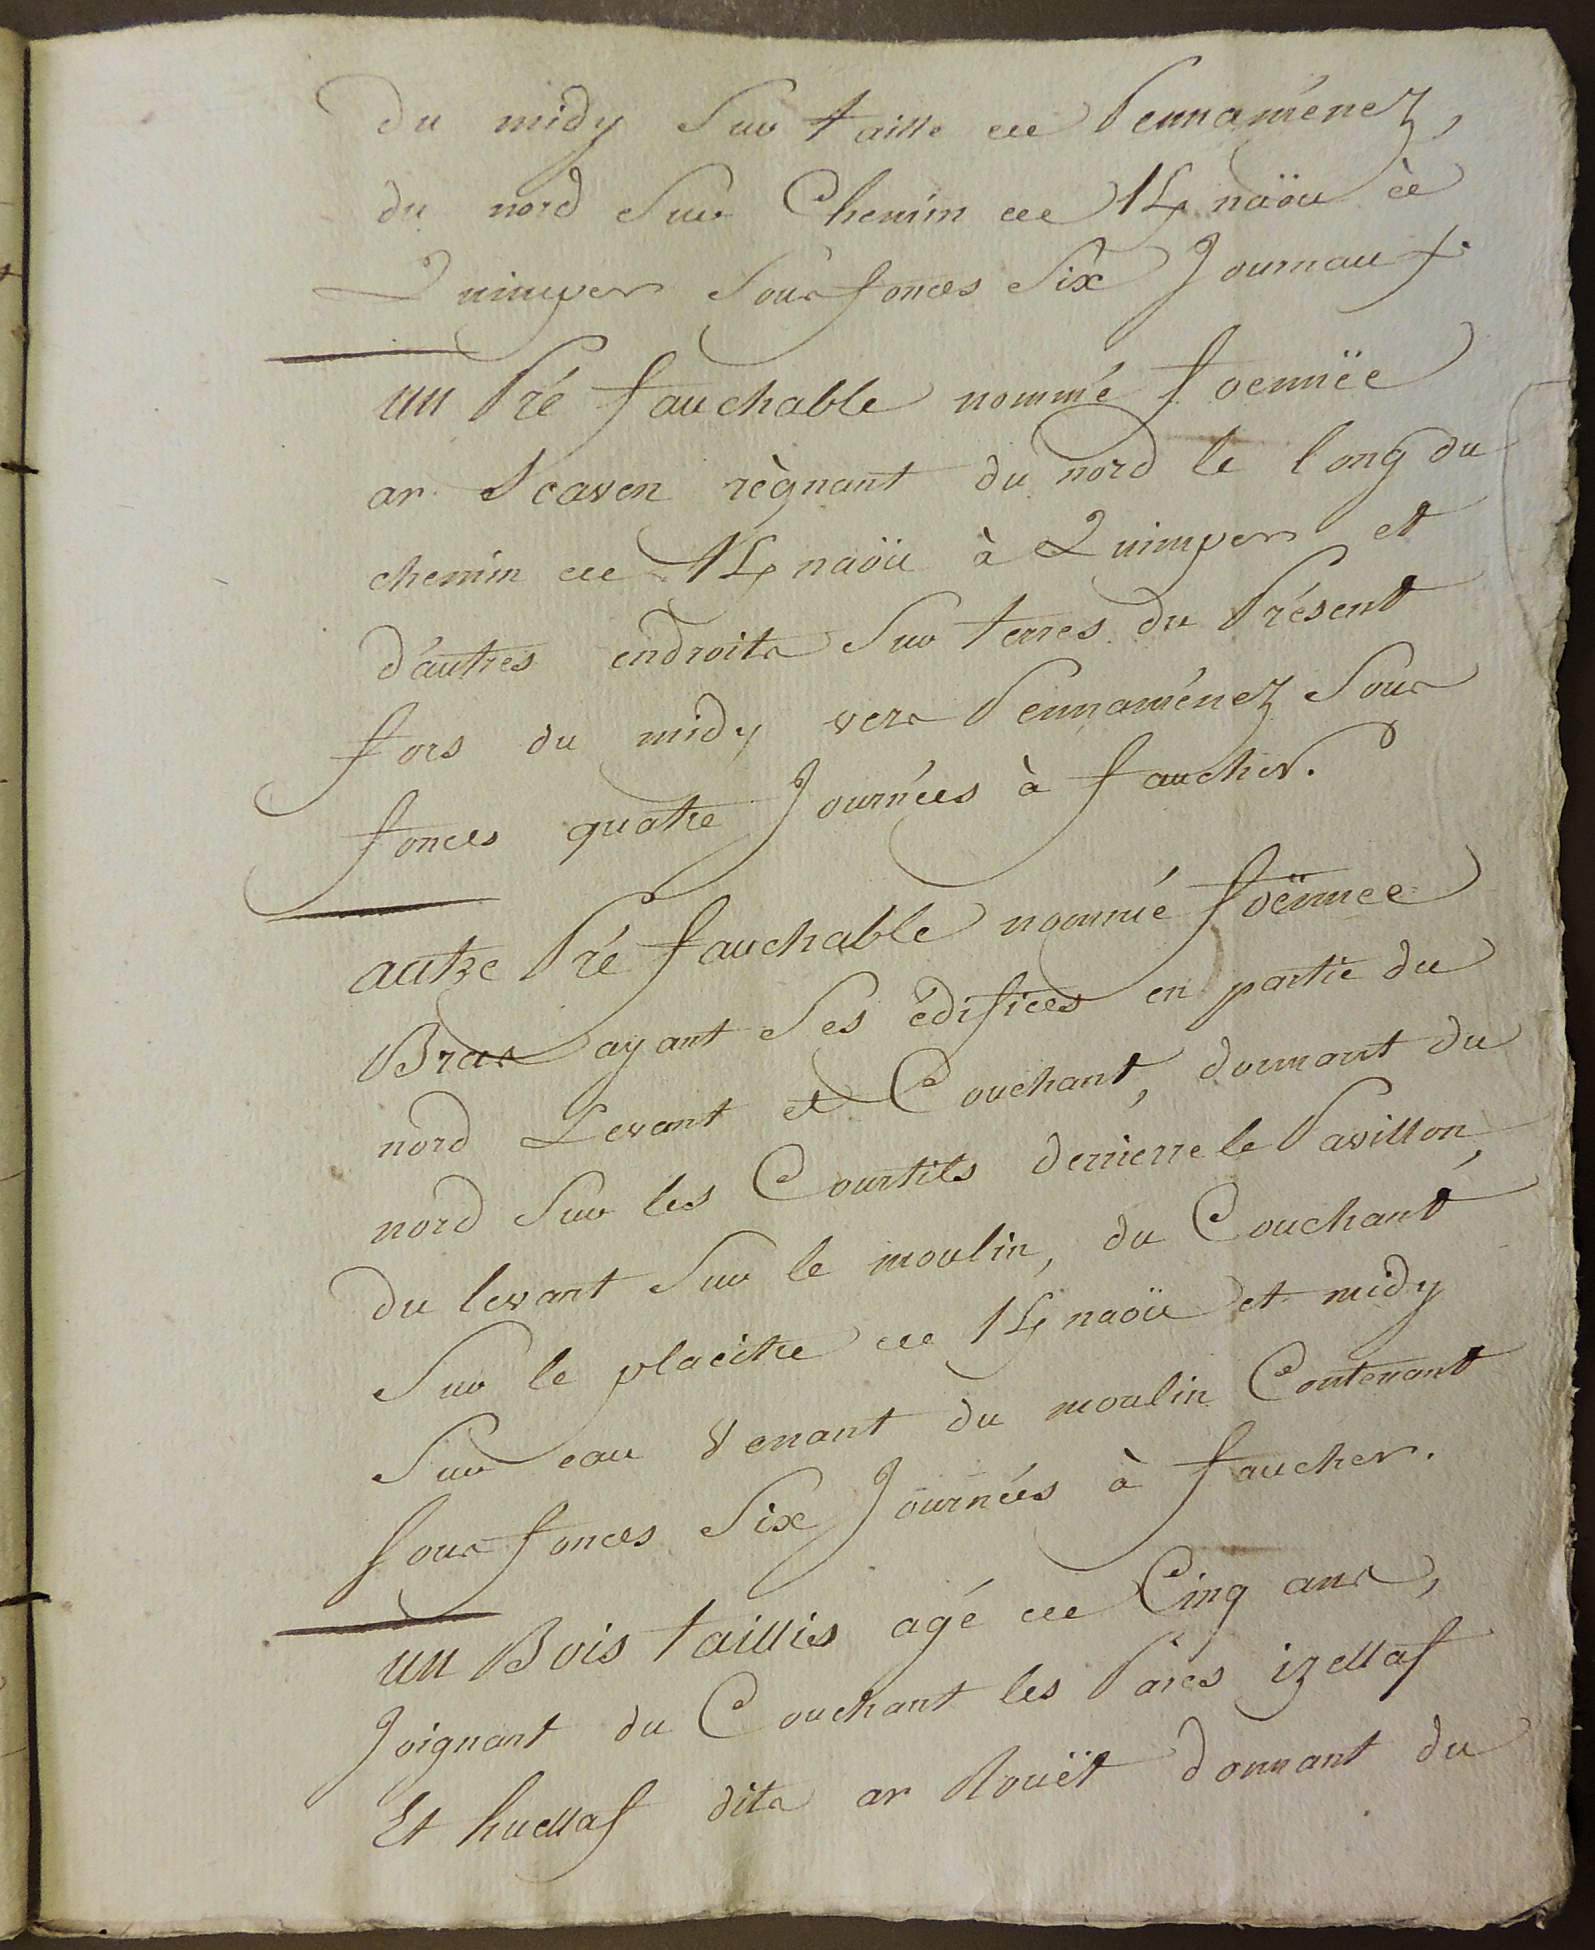 du midy Sur taille de Pennaménez,
du nord Sur Chemin de K/naöu à
Quimper Sous fonces Six Journaux.
un Pré fauchable nommé foennëc
ar Scaven règnant du nord le long du
chemin de K/naöu à Quimper et
d'autres endroits Sur terres du Présent
fors du midy vers Pennaménez Sous
fonces quatre Journées à faucher.
autre Pré fauchable nommé foënnec
Bras ayant Ses édifices en partie du
nord Levant et Couchant, donnant du
nord Sur les Courtils derrierre le Pavillon,
du levant Sur le moulin, du Couchant
Sur le placitre de K/naöu et midy
Sur eau Venant du moulin Contenant
Sous fonces Six Journées à faucher.
un Bois taillis agé de Cinq ans,
Joignant du Couchant les Parcs izellaf
Et huellaf dits ar Rouët donnant du